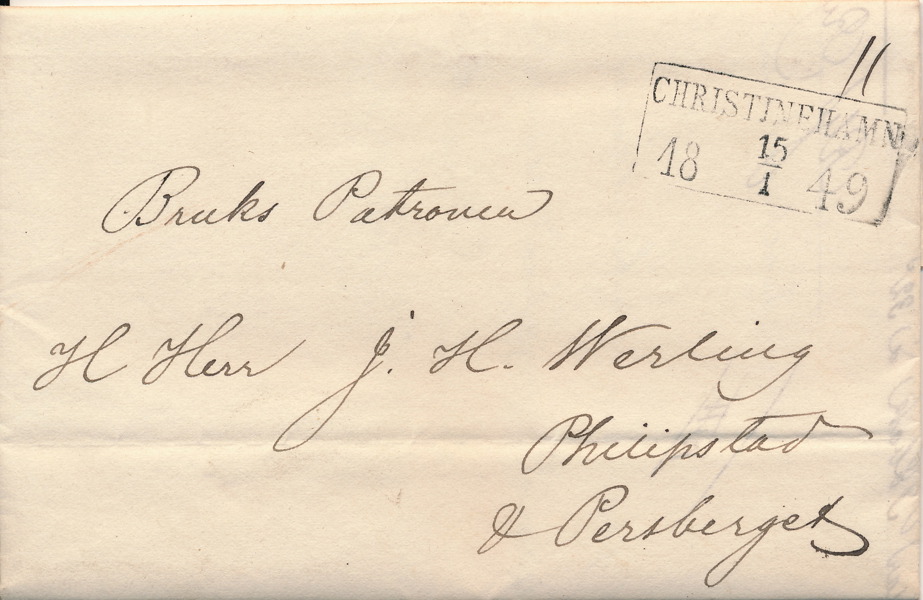 CHRISTINEHAMN
18 15/1 49
Bruks Patronen
H Herr J. H. Werling
Philipstad
& Persberget